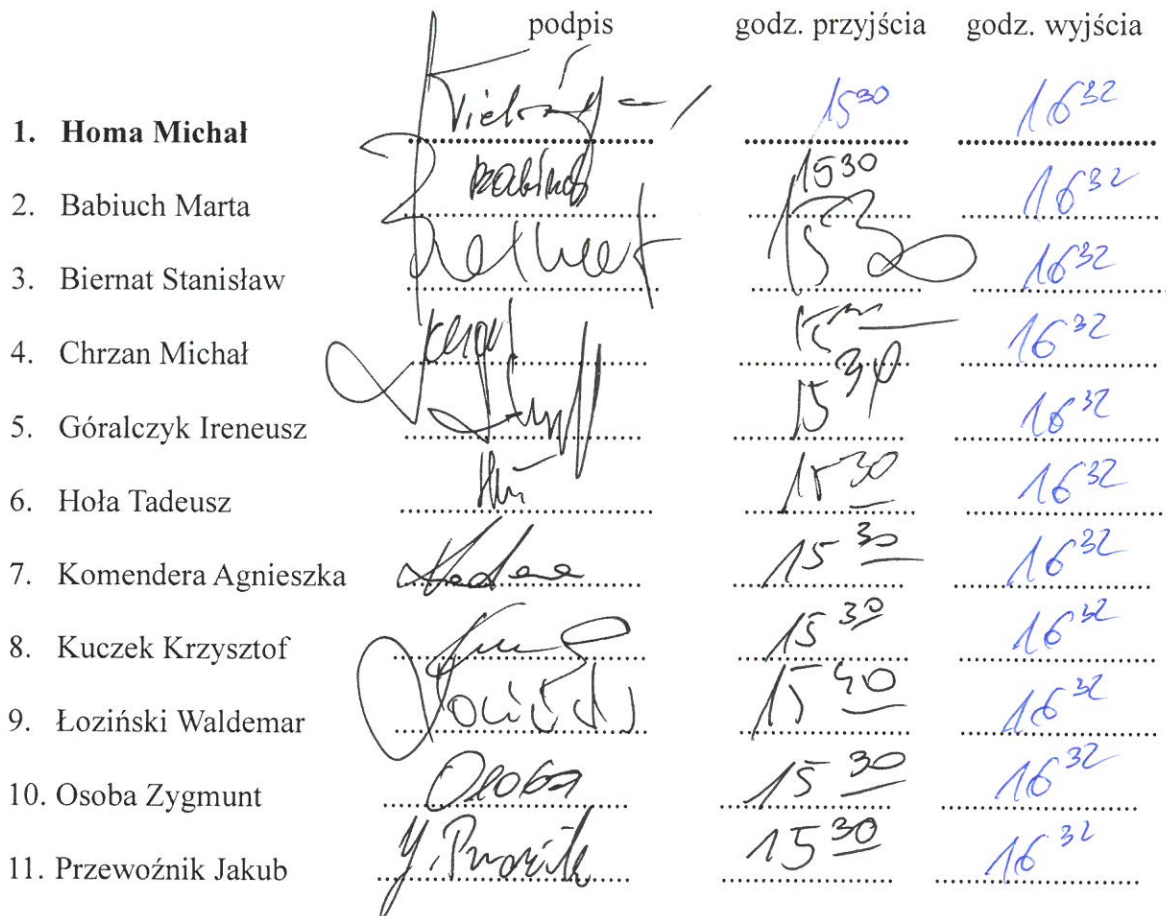 podpis godz. przyjścia godz. wyjścia
1. Homa Michał 15 30 16 32
2. Babiuch Marta 15 30 16 32
3. Biernat Stanisław 16 32
4. Chrzan Michał 16 32
5. Góralczyk Ireneusz 15 30 16 32
6. Hoła Tadeusz 15 30 16 32
7. Komendera Agnieszka 15 30 16 32
8. Kuczek Krzysztof 15 30 16 32
9. Łoziński Waldemar 15 40 16 32
10. Osoba Zygmunt Osoba 15 30 16 32
11. Przewoźnik Jakub 15 30 16 32